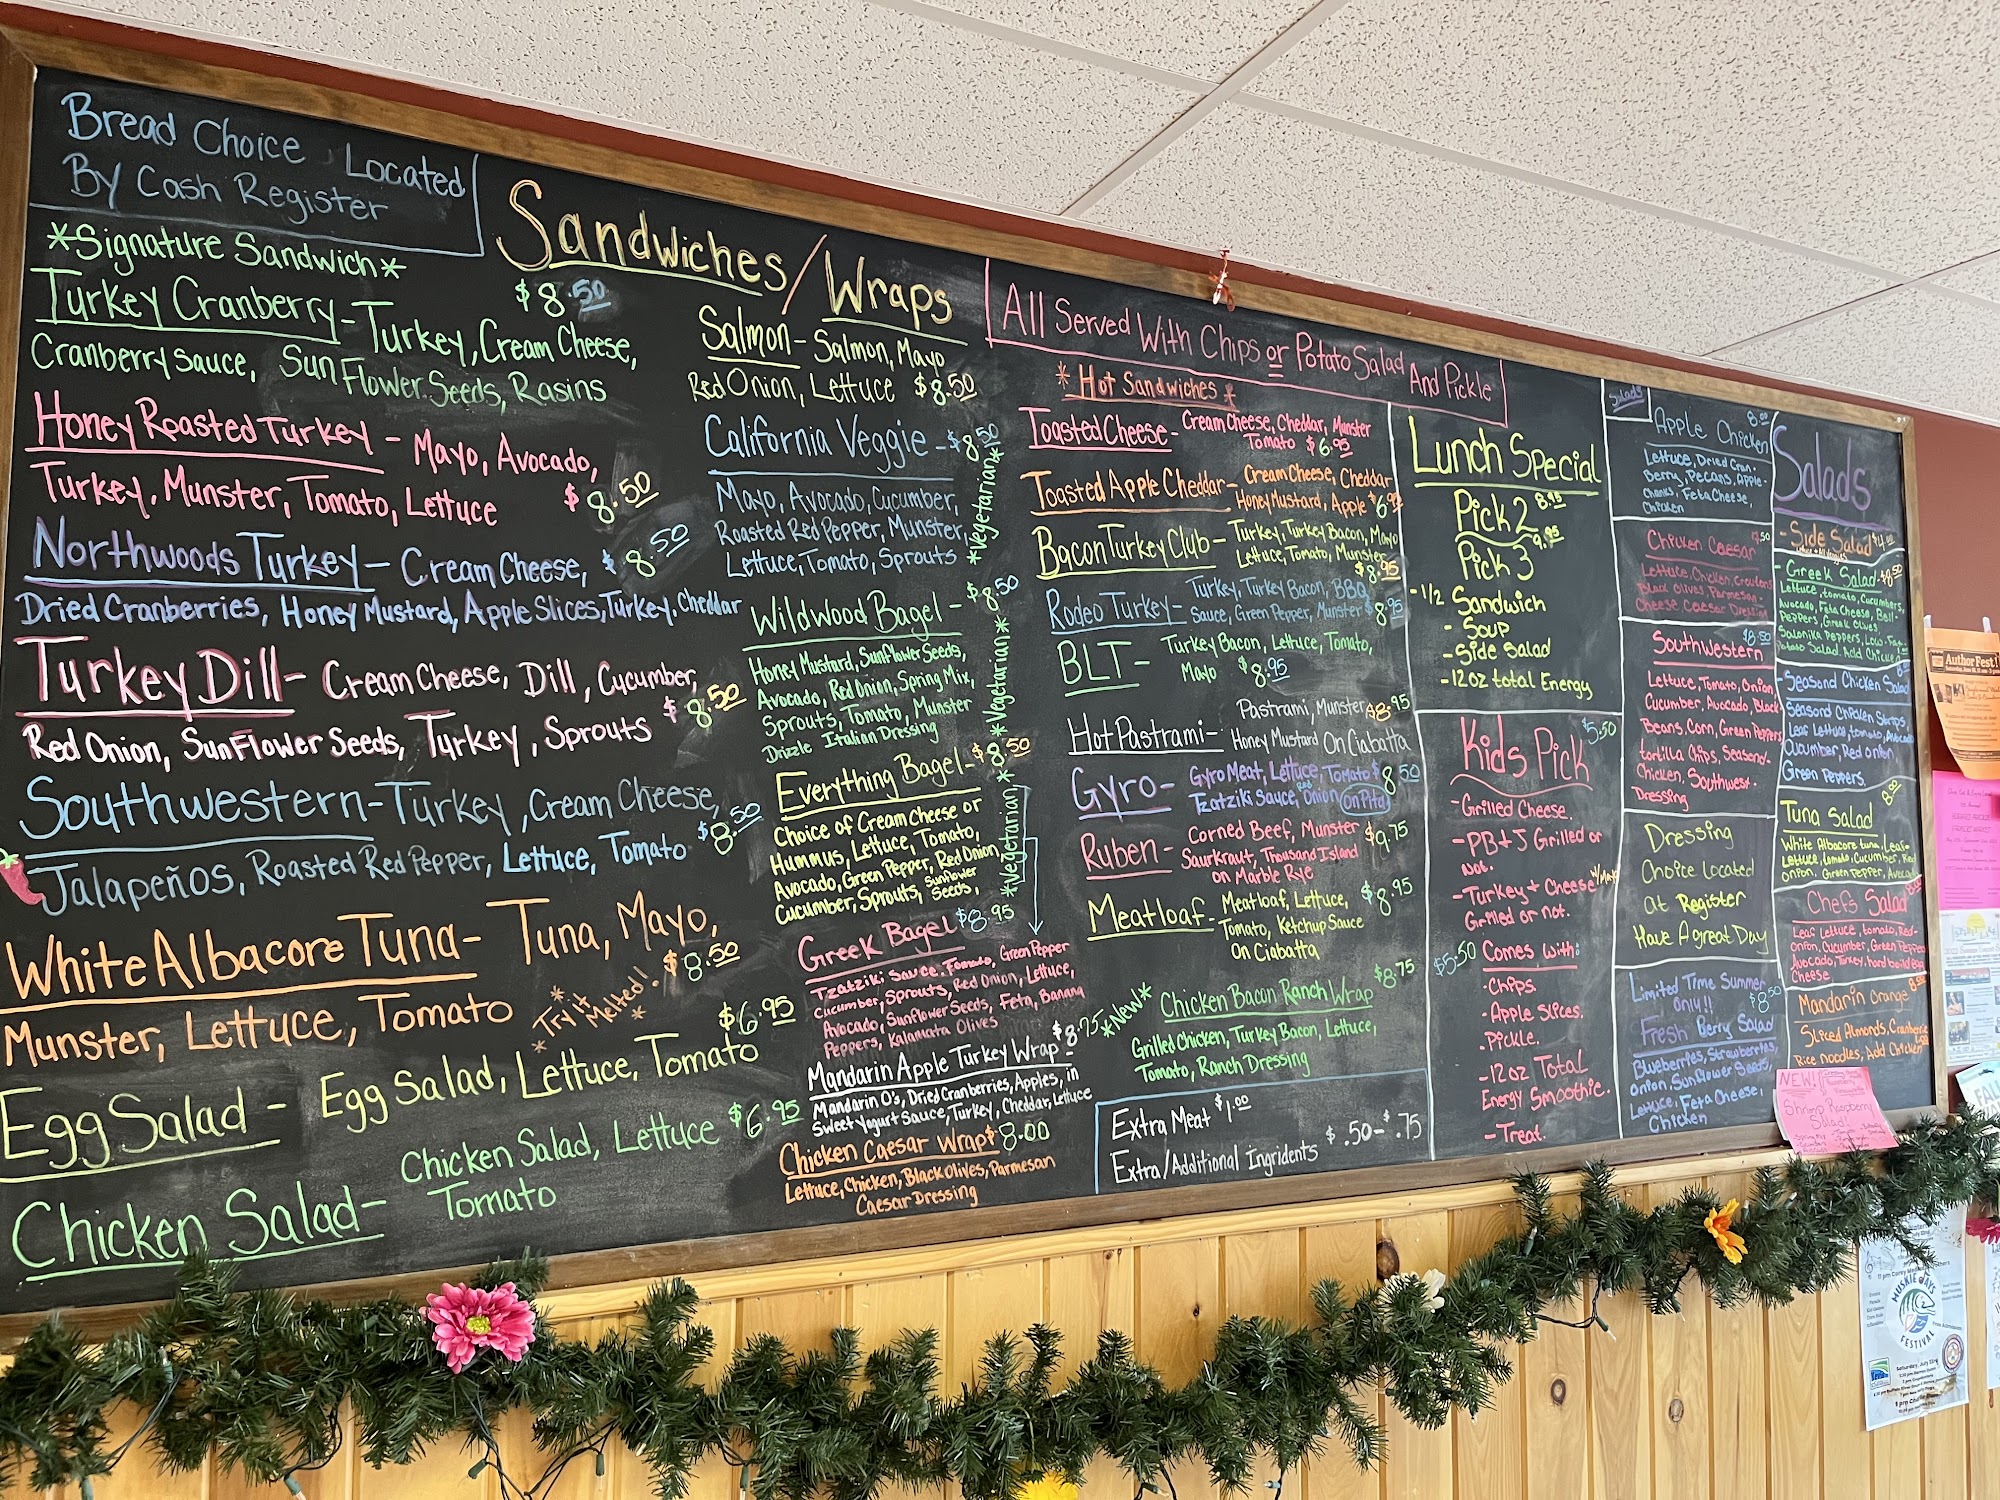 Bread Choice Located
By Cash Register
Sandwiches/Wraps
*Signature Sandwich*
Turkey Cranberry - Turkey, Cream Cheese, $8.50
Cranberry Sauce, SunFlower Seeds, Rasins
Honey Roasted Turkey - Mayo, Avocado,
Turkey, Munster, Tomato, Lettuce $8.50
Northwoods Turkey - Cream Cheese, $8.50
Dried Cranberries, Honey Mustard, Apple Slices, Turkey, Cheddar
Turkey Dill - Cream Cheese, Dill, Cucumber,
Red Onion, SunFlower Seeds, Turkey, Sprouts $8.50
Southwestern - Turkey, Cream Cheese,
Jalapeños, Roasted Red Pepper, Lettuce, Tomato $8.50
White Albacore Tuna - Tuna, Mayo,
Munster, Lettuce, Tomato $8.50
*Try it
Melted!*
Egg Salad - Egg Salad, Lettuce, Tomato $6.95
Chicken Salad - Chicken Salad, Lettuce $6.95
Tomato
Salmon - Salmon, Mayo
Red Onion, Lettuce $8.50
California Veggie - $8.50
Mayo, Avocado, Cucumber,
Roasted Red Pepper, Munster,
Lettuce, Tomato, Sprouts
*Vegetarian*
Wildwood Bagel - $8.50
Honey Mustard, SunFlower Seeds,
Avocado, Red Onion, Spring Mix,
Sprouts, Tomato, Munster
Drizzle Italian Dressing
*Vegetarian*
Everything Bagel - $8.50
Choice of Cream Cheese or
Hummus, Lettuce, Tomato,
Avocado, Green Pepper, Red Onion
Cucumber, Sprouts, Sunflower
Seeds,
*Vegetarian*
Greek Bagel $8.95
Tzatziki Sauce, Tomato, Green Pepper
Cucumber, Sprouts, Red Onion, Lettuce,
Avocado, SunFlower Seeds, Feta, Banana
Peppers, Kalamata Olives
Mandarin Apple Turkey Wrap $8.75
Mandarin O's, Dried Cranberries, Apples, in
Sweet Yogurt Sauce, Turkey, Cheddar, Lettuce
Chicken Caesar Wrap $8.00
Lettuce, Chicken, Black Olives, Parmesan
Caesar Dressing
All Served With Chips or Potato Salad And Pickle
*Hot Sandwiches*
Toasted Cheese - Cream Cheese, Cheddar, Munster
Tomato $6.95
Toasted Apple Cheddar - Cream Cheese, Cheddar
Honey Mustard, Apple $6.95
Bacon Turkey Club - Turkey, Turkey Bacon, Mayo
Lettuce, Tomato, Munster
$8.95
Rodeo Turkey - Turkey, Turkey Bacon, BBQ
Sauce, Green Pepper, Munster $8.95
BLT - Turkey Bacon, Lettuce, Tomato,
Mayo $8.95
Hot Pastrami - Pastrami, Munster $8.95
Honey Mustard On Ciabatta
Gyro - Gyro Meat, Lettuce, Tomato $8.50
Tzatziki Sauce, Red Onion on Pita
Ruben - Corned Beef, Munster $9.75
Saurkraut, Thousand Island
on Marble Rye
Meatloaf - Meatloaf, Lettuce, $8.95
Tomato, Ketchup Sauce
On Ciabatta
*New*
Chicken Bacon Ranch Wrap $8.75
Grilled Chicken, Turkey Bacon, Lettuce,
Tomato, Ranch Dressing
Extra Meat $1.00
Extra/Additional Ingridents $.50-$.75
Lunch Special
Pick 2 8.95
Pick 3 9.95
- 1/2 Sandwich
- Soup
- Side Salad
- 12oz total Energy
Kids Pick $5.50
- Grilled Cheese.
- PB+J Grilled or
Not.
- Turkey + Cheese w/Mayo
Grilled or not.
$5.50 Comes with:
- Chips.
- Apple Slices.
- Pickle.
- 12oz Total
Energy Smoothie.
- Treat.
Salads
Apple Chicken 8.00
Lettuce, Dried Cran-
Berry, Pecans, Apple-
Chunks, Feta Cheese,
Chicken
Chicken Caesar 7.50
Lettuce, Chicken, Croutons
Black Olives, Parmesan-
Cheese Caesar Dressing
Southwestern $8.50
Lettuce, Tomato, Onion,
Cucumber, Avocado, Black
Beans, Corn, Green Peppers
tortilla Chips, Seasond-
Chicken, Southwest-
Dressing
Dressing
Choice Located
at Register
Have A great Day
Limited Time Summer
only!! $8.50
Fresh Berry Salad
Blueberries, Strawberries,
Onion, Sunflower Seeds,
Lettuce, Feta Cheese,
Chicken
Salads
- Side Salad $4.00
- Greek Salad - $8.50
Lettuce, tomato, Cucumbers,
Avocado, Feta Cheese, Bell-
Peppers, Greek Olives
Salonika Peppers,
Potato Salad Add Chicken
- Seasond Chicken Salad
Seasond Chicken Strips,
Leaf Lettuce, tomato, Avocado
Cucumber, Red onion
Green Peppers.
Tuna Salad 8.00
White Albacore tuna, Leaf-
Lettuce, tomato, Cucumber, Red
Onion, Green Pepper, Avocado
Chef's Salad
Leaf Lettuce, tomato, Red-
Onion, Cucumber, Green Pepper
Avocado, Turkey, hard boild egg
Cheese
Mandarin Orange
Sliced Almonds, Cranberries
Rice noodles, Add Chicken
NEW!
Shrimp Raspberry
Salad
Author Fest!
MUSKIE DAYS
FESTIVAL
Saturday, July